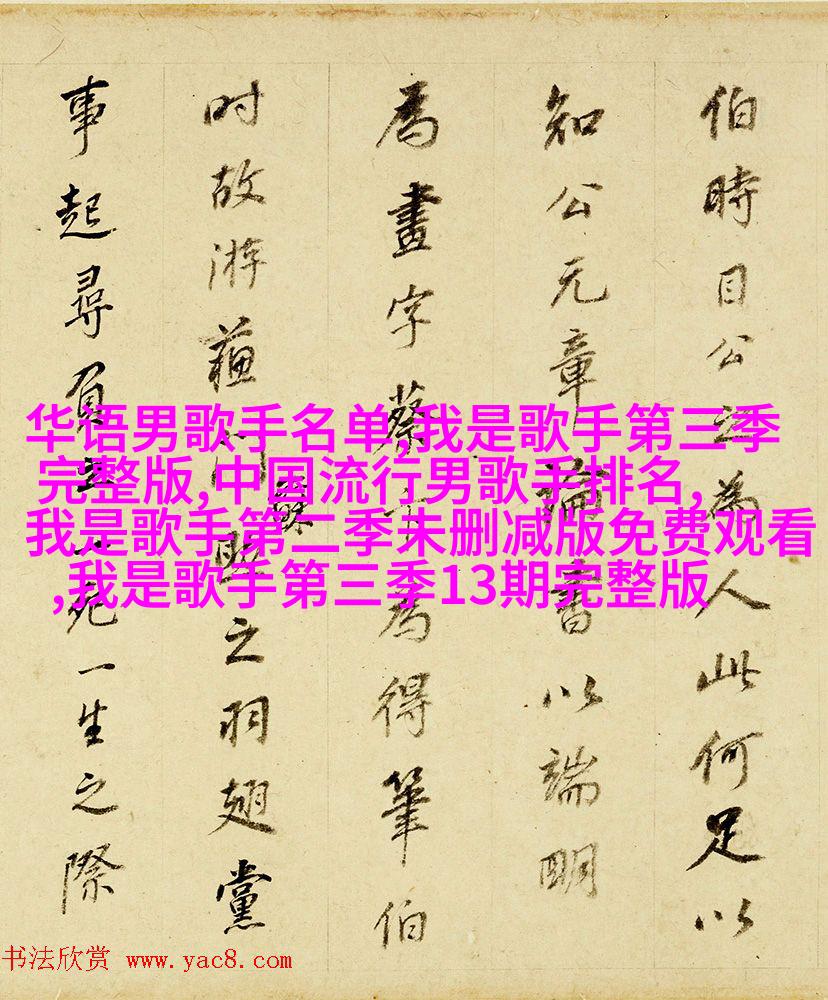 伯時目公為人此何足以
知公元章書以端明
為畫字蔡為得筆伯
时故游蘓门之羽翅黨
事起尋負死一生之際
华语男歌手名单,我是歌手第三季
完整版,中国流行男歌手排名,
我是歌手第二季未删减版免费观看
,我是歌手第三季13期完整版
书法欣赏 www.yac8.com